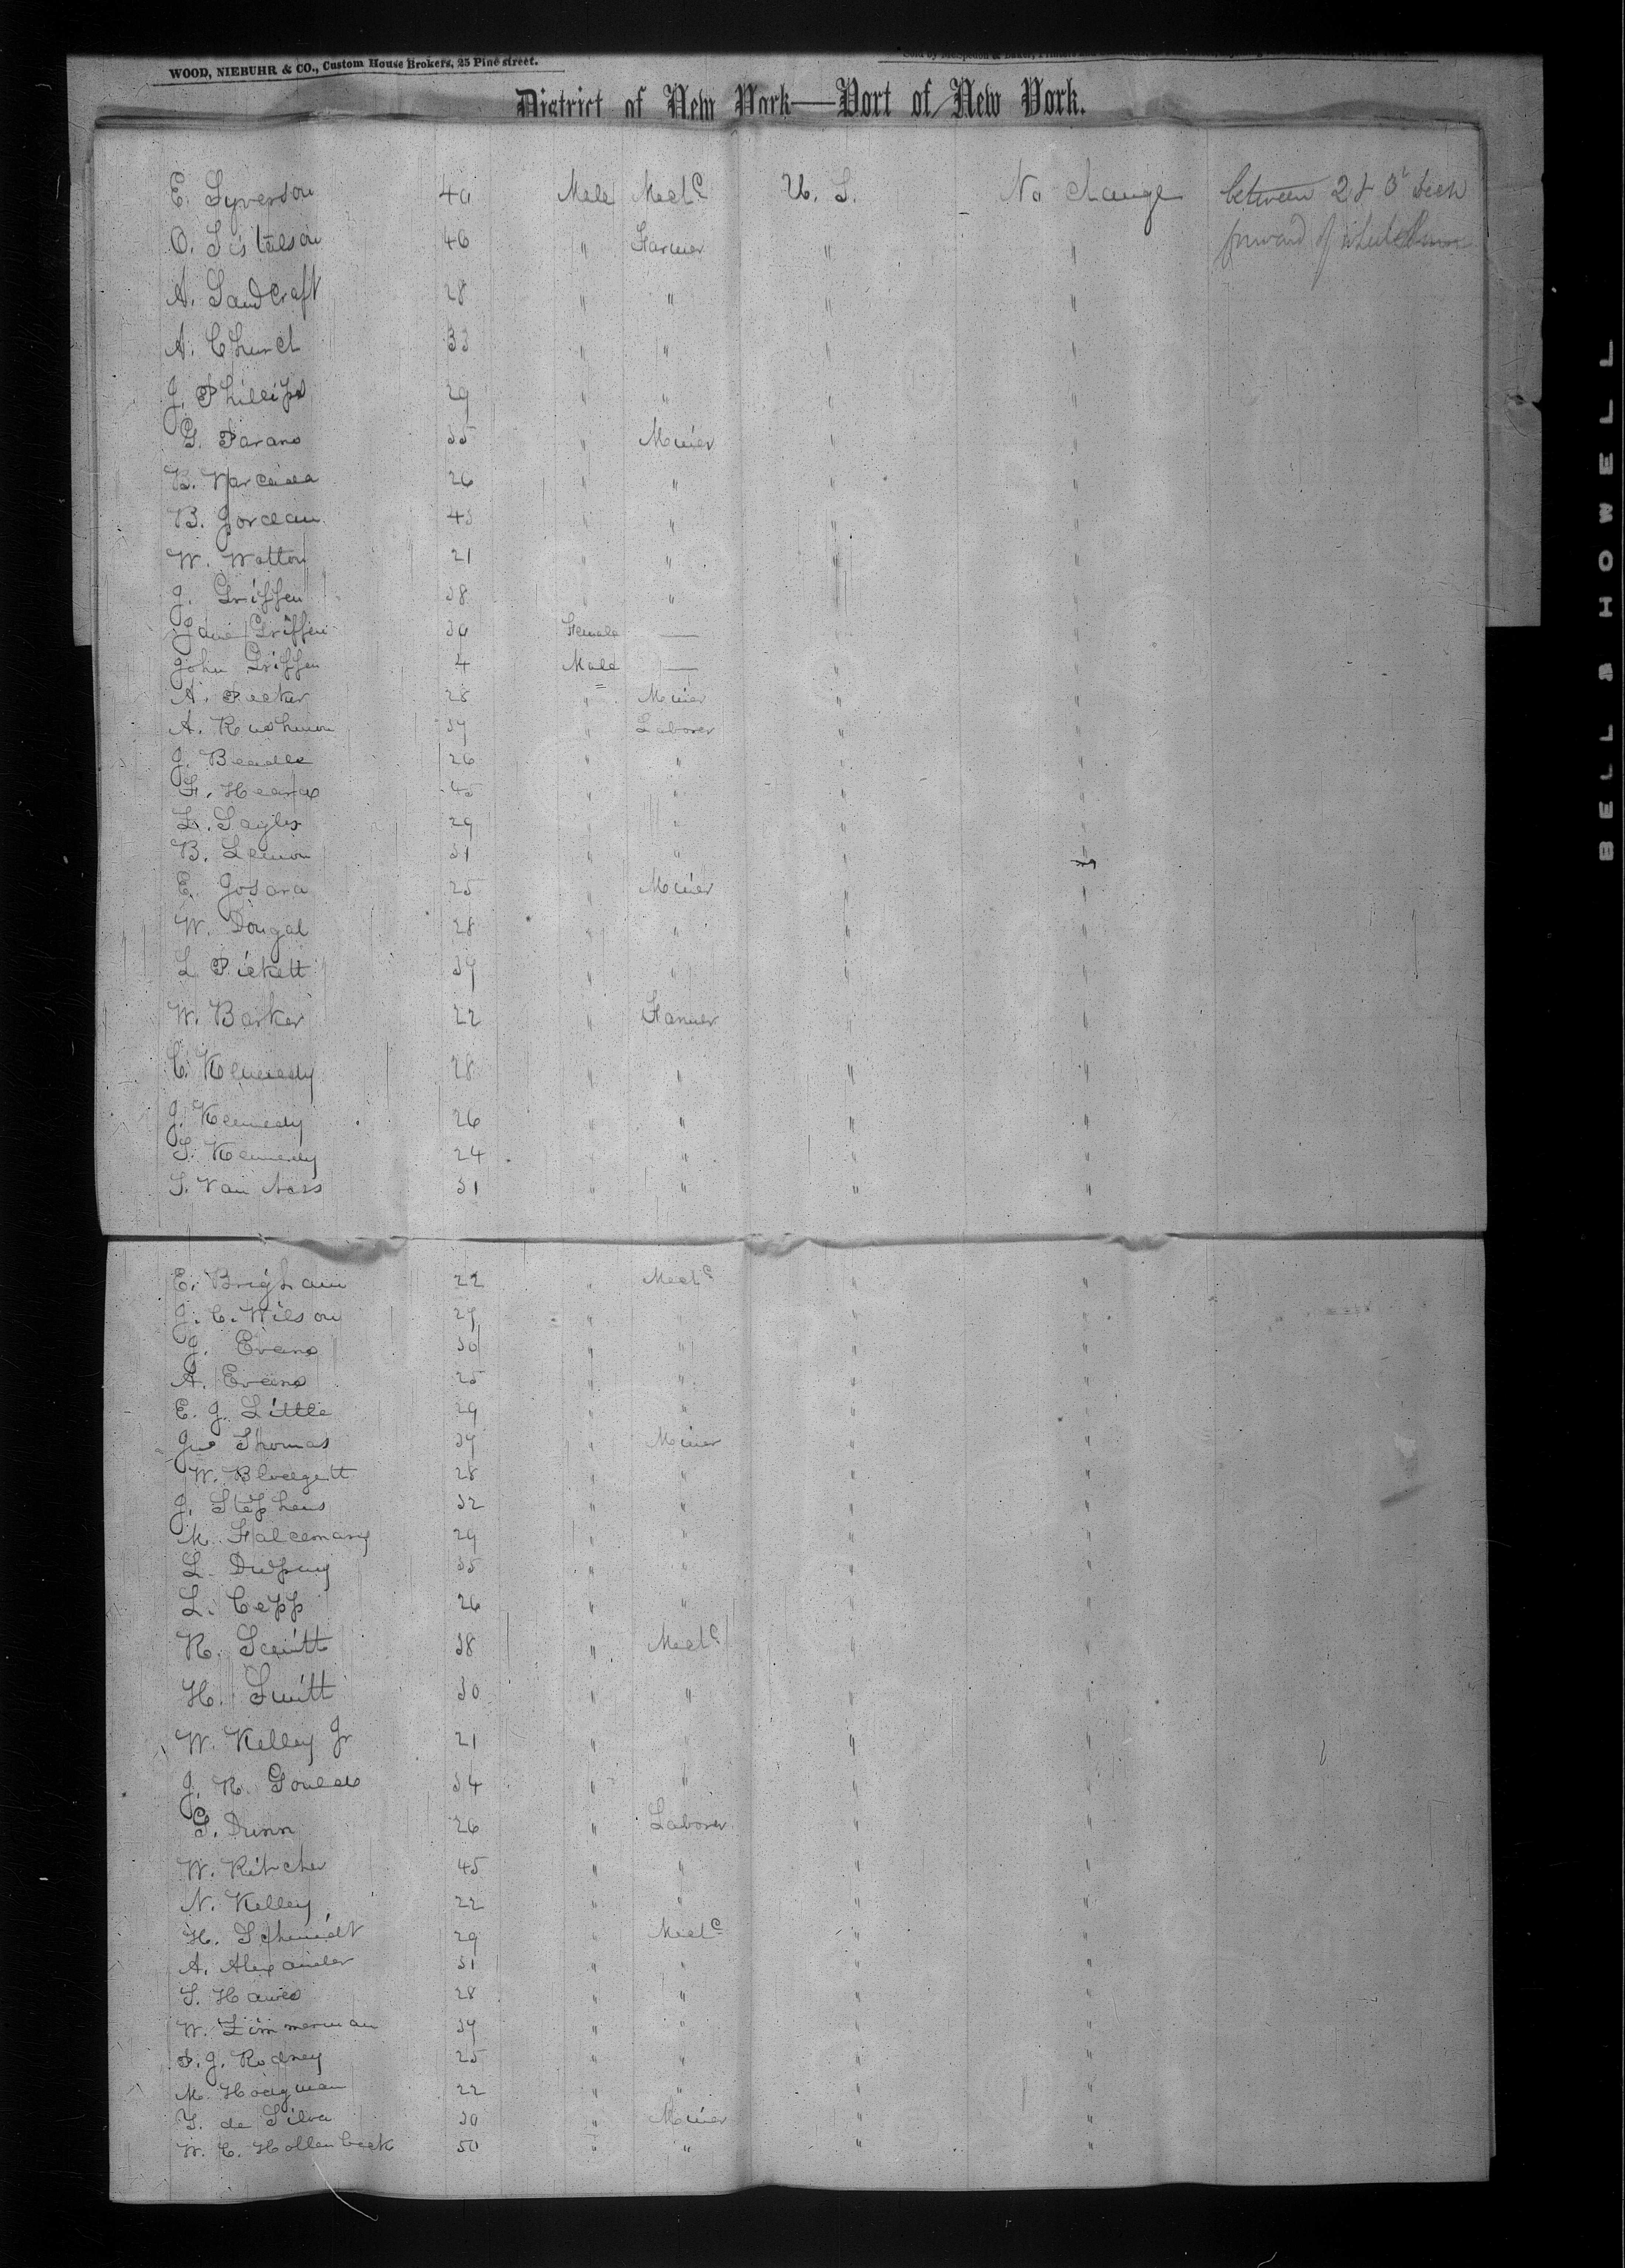 WOOD, NIEBUHR & CO., Custom House Brokers, 25 Pine street.
District of New York—Port of New York.
E. Syverson 40 Male Mech^c U. S. No change between 2 & 3^r Deck
O. 46 " Farmer " " forward of
A. Sandcraft 28 " " " "
A. Church 33 " " " "
J. Phillips 29 " " " "
G. Parano 35 " Miner " "
B. 26 " " " "
B. 43 " " " "
W. Watton 21 " " " "
J. Griffen 38 " " " "
Jane Griffen 30 Female — " "
John Griffen 4 Male — " "
A. Pecker 28 " Miner " "
A. Rushmon 37 " Laborer " "
J. Beadle 26 " " " "
F. 45 " " " "
L. Sayles 29 " " " "
B. Lemon 31 " " " "
E. Gosara 25 " Miner " "
W. Dougal 28 " " " "
L Pickett 37 " " " "
W. Barker 22 " Farmer " "
C. Kennedy 28 " " " "
J. Kennedy 26 " " " "
S. Kennedy 24 " " " "
S. Van Nass 31 " " " "
E. Brigham 22 " Mech^c " "
J. C. Wilson 27 " " " "
J. Evans 30 " " " "
A. Evans 25 " " " "
E. J. Little 29 " " " "
Jno Thomas 37 " Miner " "
W. Blodgett 28 " " " "
J. Stephens 32 " " " "
M. 29 " " " "
L. Dupuy 35 " " " "
L. Cepp 26 " " " "
R. 38 " Mech^c " "
H. 30 " " " "
W. Kelley Jr 21 " " " "
J. R. Goulds 34 " " " "
G. Dunn 26 " Laborer " "
W. Ritcher 45 " " " "
N. Kelley 22 " " " "
H. Schmidt 29 " Mech^c " "
A. Alexander 31 " " " "
S. Hawes 28 " " " "
W. Zimmerman 37 " " " "
P. J. Rodney 25 " " " "
M. Hodgman 22 " " " "
Y. de Silva 30 " Miner " "
W. C. Hollenbeck 50 " " " "
BELL & HOWELL